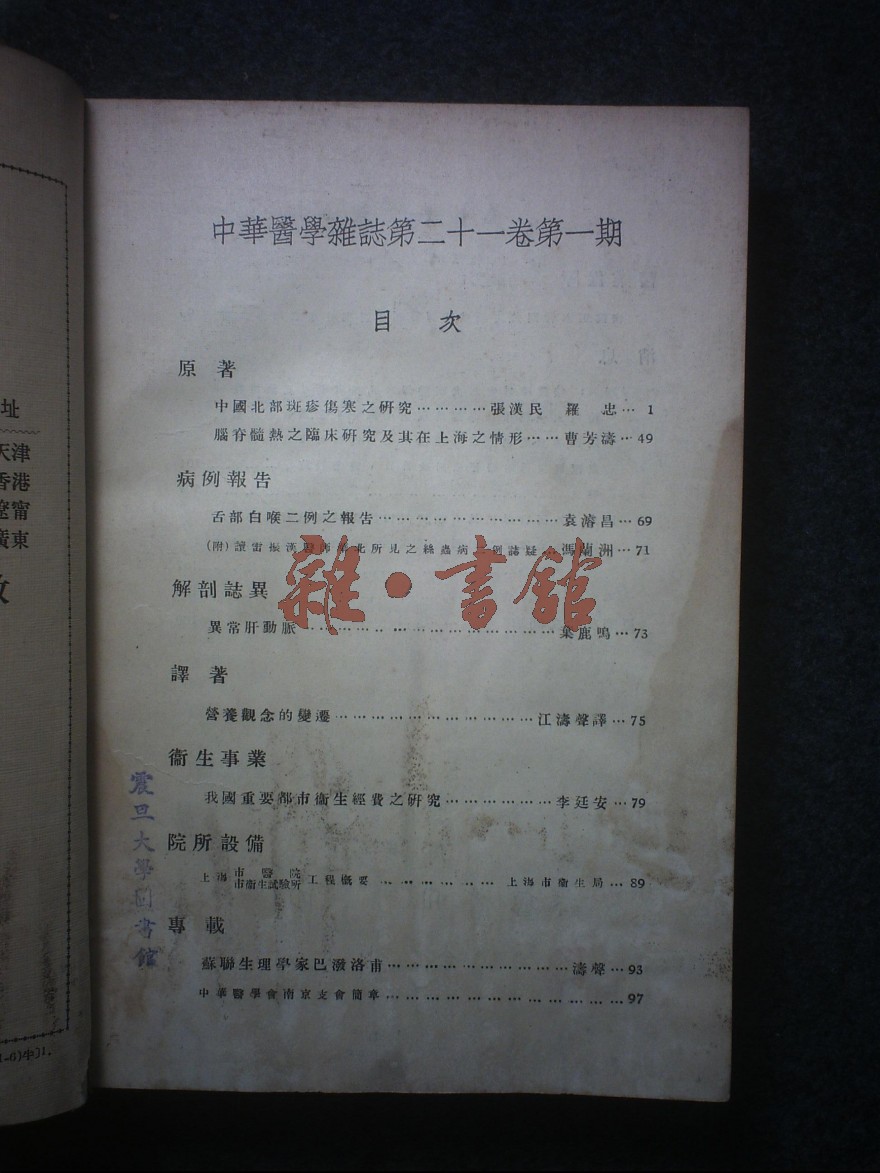 中華醫學雜誌第二十一卷第一期
目 次
原 著
中國北部斑疹傷寒之研究…………張漢民 羅 忠…1
腦脊髓熱之臨床研究及其在上海之情形……曹芳濤…49
病例報告
舌部白喉二例之報告…………………………袁濬昌…69
(附)讀雷振漢醫師 北所見之絲蟲病 例誌疑…馮蘭洲…71
解剖誌異
異常肝動脈…………………………葉鹿鳴…73
譯 著
營養觀念的變遷…………………………江濤聲譯…75
衞生事業
我國重要都市衞生經費之研究………………李廷安…79
院所設備
上海市醫院市衞生試驗所工程概要…………………上海市衞生局…89
專 載
蘇聯生理學家巴潑洛甫…………………………濤聲…93
中華醫學會南京支會簡章…………………………97
震旦大學圖書館
雜·書館
址
天津
香港
遼甯
廣東